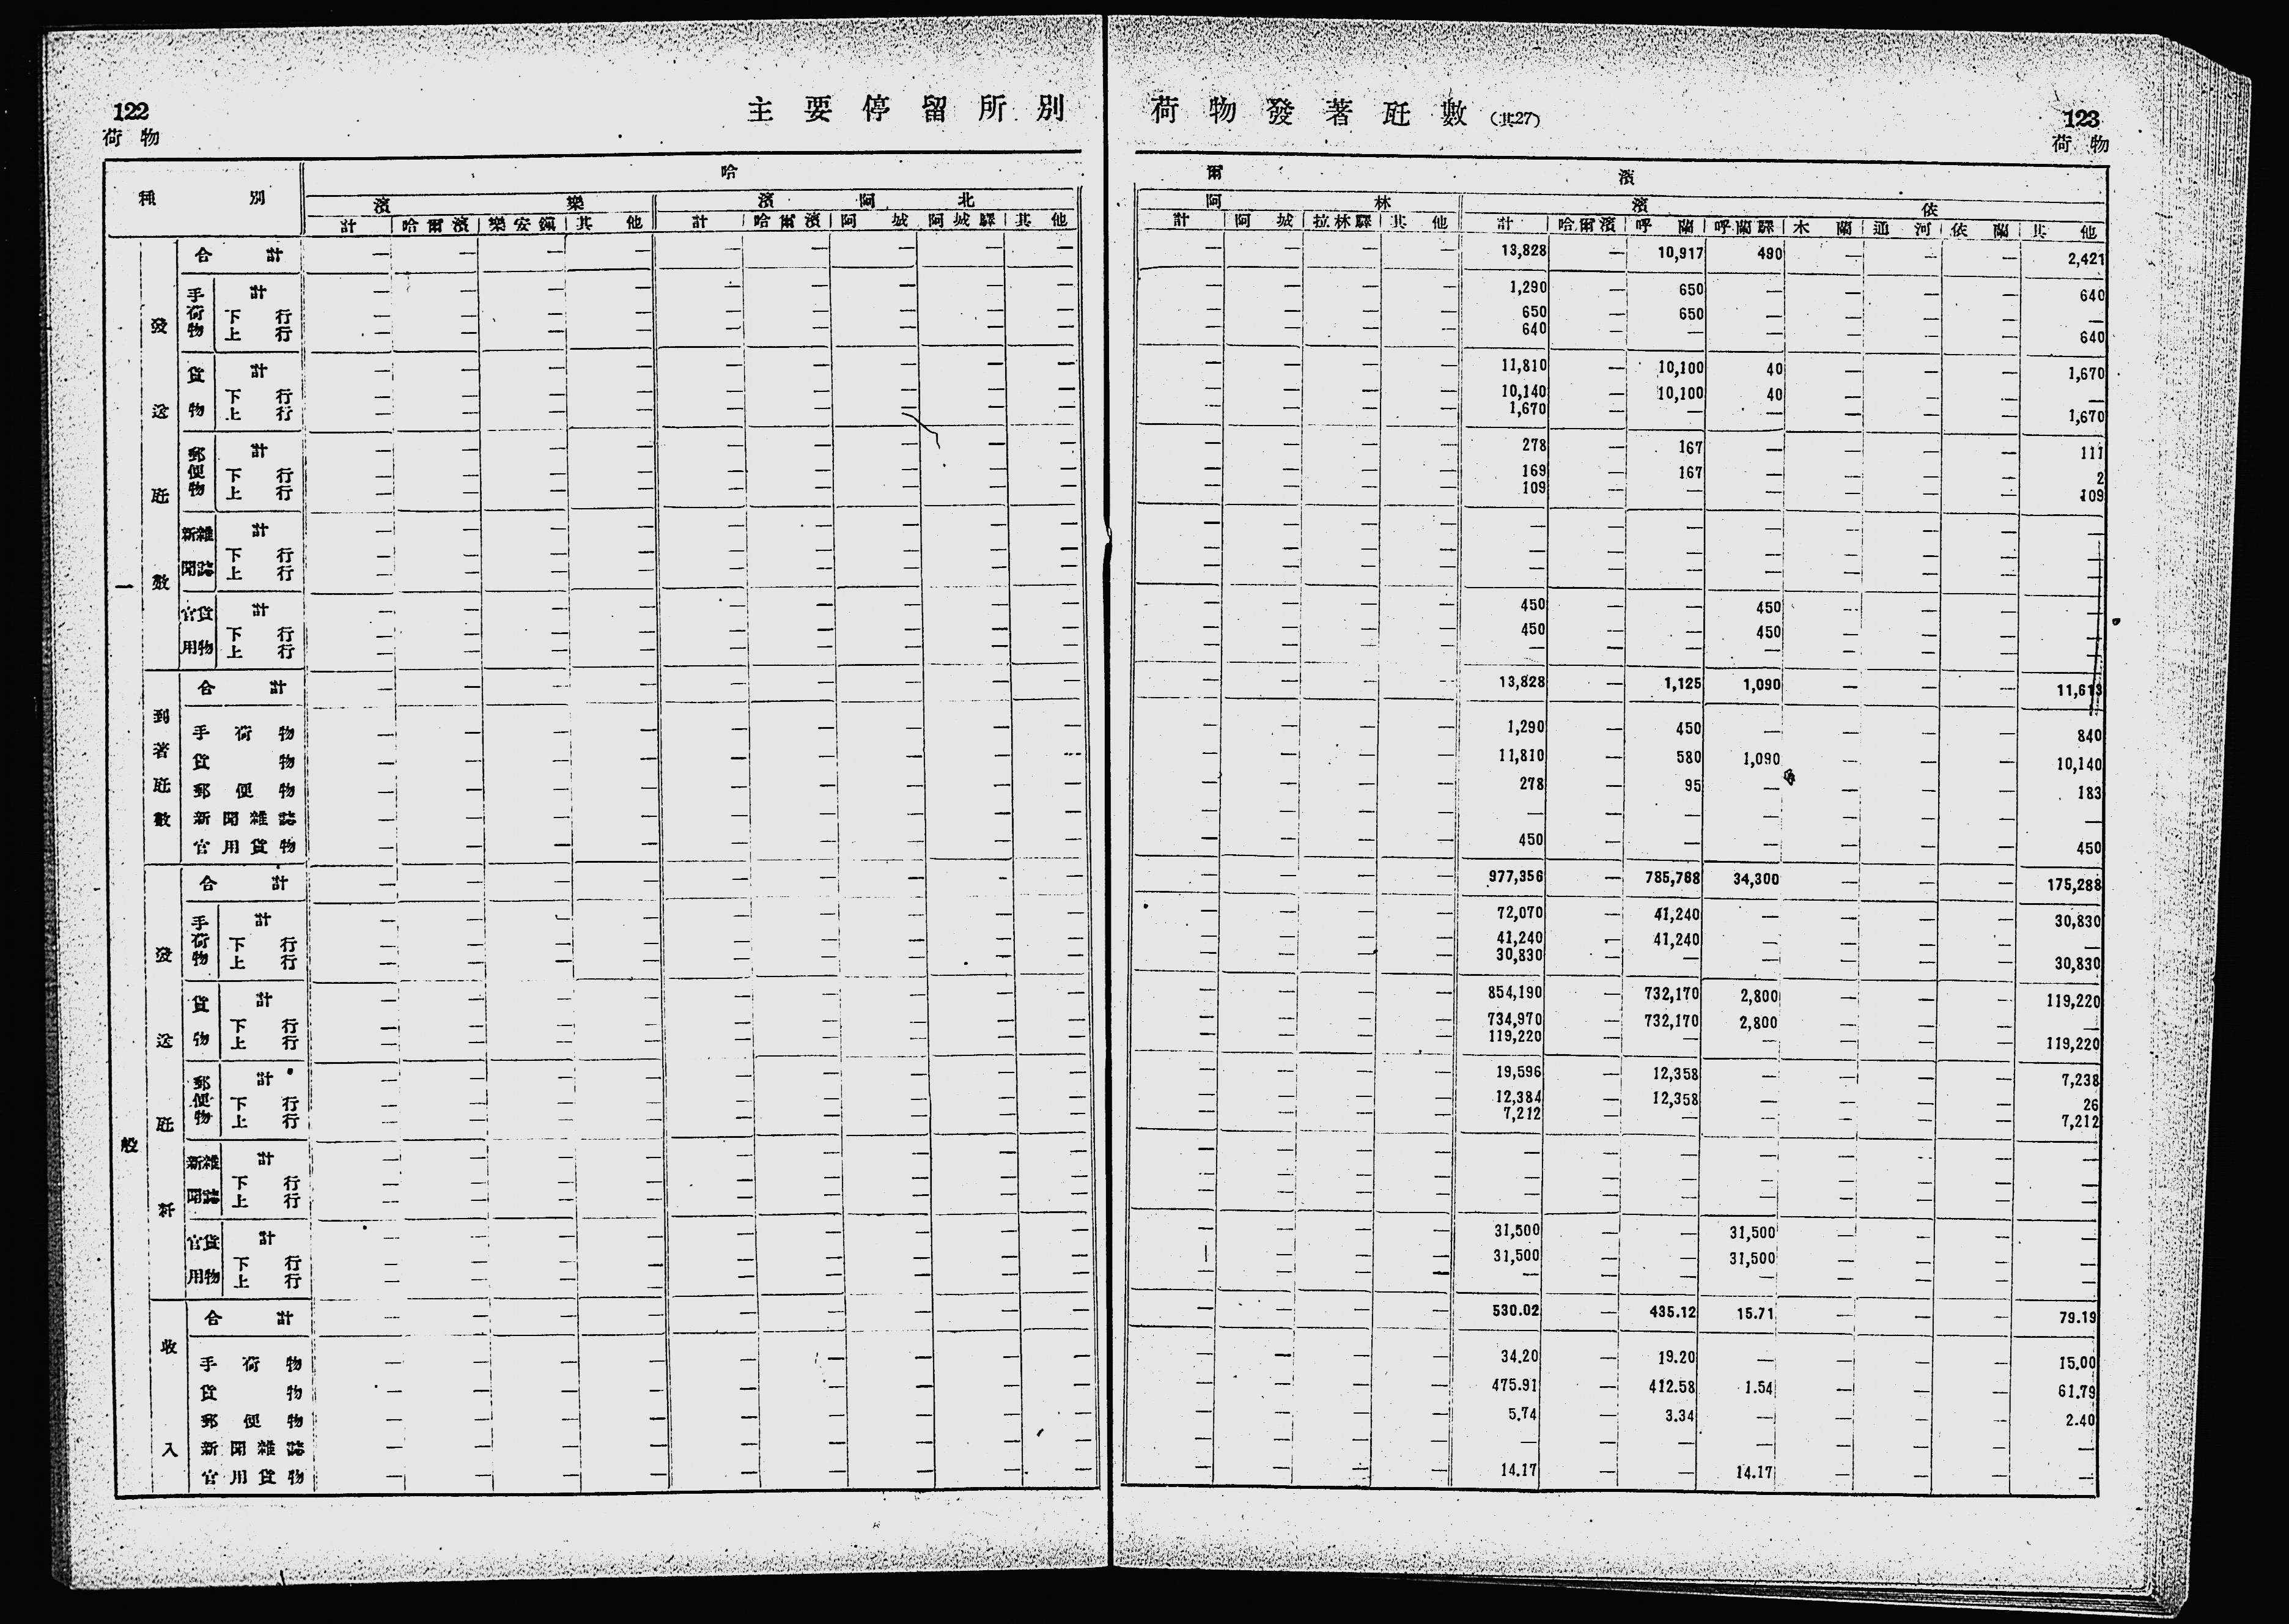 122
荷物
主要停留所別
荷物發著瓩數(其27)
123
荷物
種別
哈爾濱
濱樂
濱阿北
阿林
濱依
計 哈爾濱 樂安鎭 其他 計 哈爾濱 阿城 阿城驛 其他 計 阿城 拉林驛 其他 計 哈爾濱 呼蘭 呼蘭驛 木蘭 通河 依蘭 其他
一般
發送瓩數
合計 — — — — — — — — — — — — 13,828 — 10,917 490 — — — 2,421
手荷物
計 — — — — — — — — — — — — — 1,290 — 650 — — — — 640
下行 — — — — — — — — — — — — — 650 — 650 — — — — —
上行 — — — — — — — — — — — — — 640 — — — — — — 640
貨物
計 — — — — — — — — — — — — — 11,810 — 10,100 40 — — — 1,670
下行 — — — — — — — — — — — — — 10,140 — 10,100 40 — — — —
上行 — — — — — — — — — — — — — 1,670 — — — — — — 1,670
郵便物
計 — — — — — — — — — — — — — 278 — 167 — — — — 111
下行 — — — — — — — — — — — — — 169 — 167 — — — — 2
上行 — — — — — — — — — — — — — 109 — — — — — — 109
新聞雜誌
計 — — — — — — — — — — — — — — — — — — — — —
下行 — — — — — — — — — — — — — — — — — — — — —
上行 — — — — — — — — — — — — — — — — — — — — —
官用貨物
計 — — — — — — — — — — — — — 450 — — 450 — — — —
下行 — — — — — — — — — — — — — 450 — — 450 — — — —
上行 — — — — — — — — — — — — — — — — — — — — —
到著瓩數
合計 — — — — — — — — — — — — — 13,828 — 1,125 1,090 — — — 11,613
手荷物 — — — — — — — — — — — — — 1,290 — 450 — — — — 840
貨物 — — — — — — — — — — — — — 11,810 — 580 1,090 — — — 10,140
郵便物 — — — — — — — — — — — — — 278 — 95 — — — — 183
新聞雜誌 — — — — — — — — — — — — — — — — — — — — —
官用貨物 — — — — — — — — — — — — — 450 — — — — — — 450
發送瓩粁
合計 — — — — — — — — — — — — — 977,356 — 785,768 34,300 — — — 175,288
手荷物
計 — — — — — — — — — — — — — 72,070 — 41,240 — — — — 30,830
下行 — — — — — — — — — — — — — 41,240 — 41,240 — — — — —
上行 — — — — — — — — — — — — — 30,830 — — — — — — 30,830
貨物
計 — — — — — — — — — — — — — 854,190 — 732,170 2,800 — — — 119,220
下行 — — — — — — — — — — — — — 734,970 — 732,170 2,800 — — — —
上行 — — — — — — — — — — — — — 119,220 — — — — — — 119,220
郵便物
計 — — — — — — — — — — — — — 19,596 — 12,358 — — — — 7,238
下行 — — — — — — — — — — — — — 12,384 — 12,358 — — — — 26
上行 — — — — — — — — — — — — — 7,212 — — — — — — 7,212
新聞雜誌
計 — — — — — — — — — — — — — — — — — — — — —
下行 — — — — — — — — — — — — — — — — — — — — —
上行 — — — — — — — — — — — — — — — — — — — — —
官用貨物
計 — — — — — — — — — — — — — 31,500 — — 31,500 — — — —
下行 — — — — — — — — — — — — — 31,500 — — 31,500 — — — —
上行 — — — — — — — — — — — — — — — — — — — — —
收入
合計 — — — — — — — — — — — — — 530.02 — 435.12 15.71 — — — 79.19
手荷物 — — — — — — — — — — — — — 34.20 — 19.20 — — — — 15.00
貨物 — — — — — — — — — — — — — 475.91 — 412.58 1.54 — — — 61.79
郵便物 — — — — — — — — — — — — — 5.74 — 3.34 — — — — 2.40
新聞雜誌 — — — — — — — — — — — — — — — — — — — — —
官用貨物 — — — — — — — — — — — — — 14.17 — — 14.17 — — — —